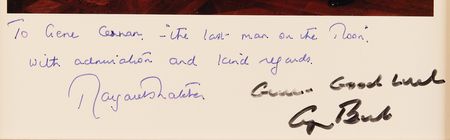 To Gene Cernan, - "the last man on the Moon".
with admiration and kind regards.
Margaret Thatcher
Gene - Good Luck
G Bush